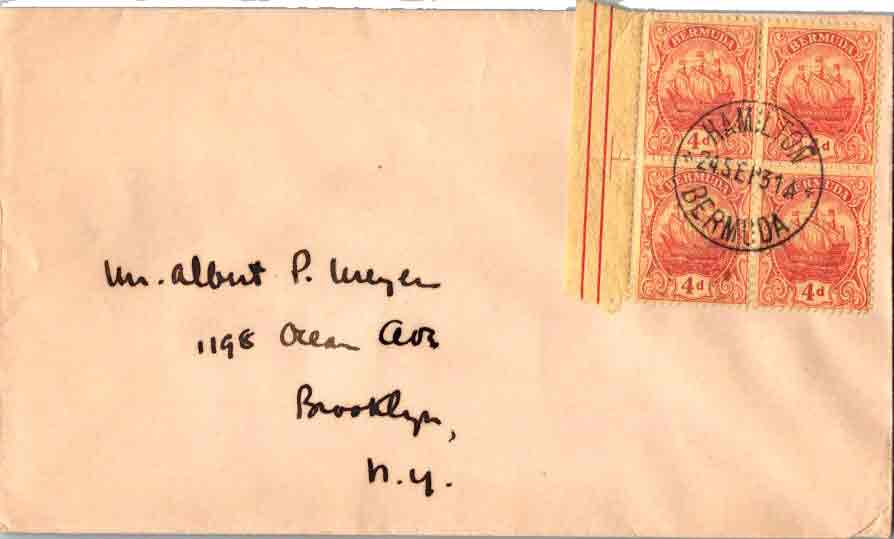 BERMUDA BERMUDA
4d d
HAMILTON
* 24 SEP 31 A *
BERMUDA
BERMUDA BERMUDA
4d 4d
Mr. Albert P. Meyer
1198 Ocean Ave
Brooklyn,
N.Y.